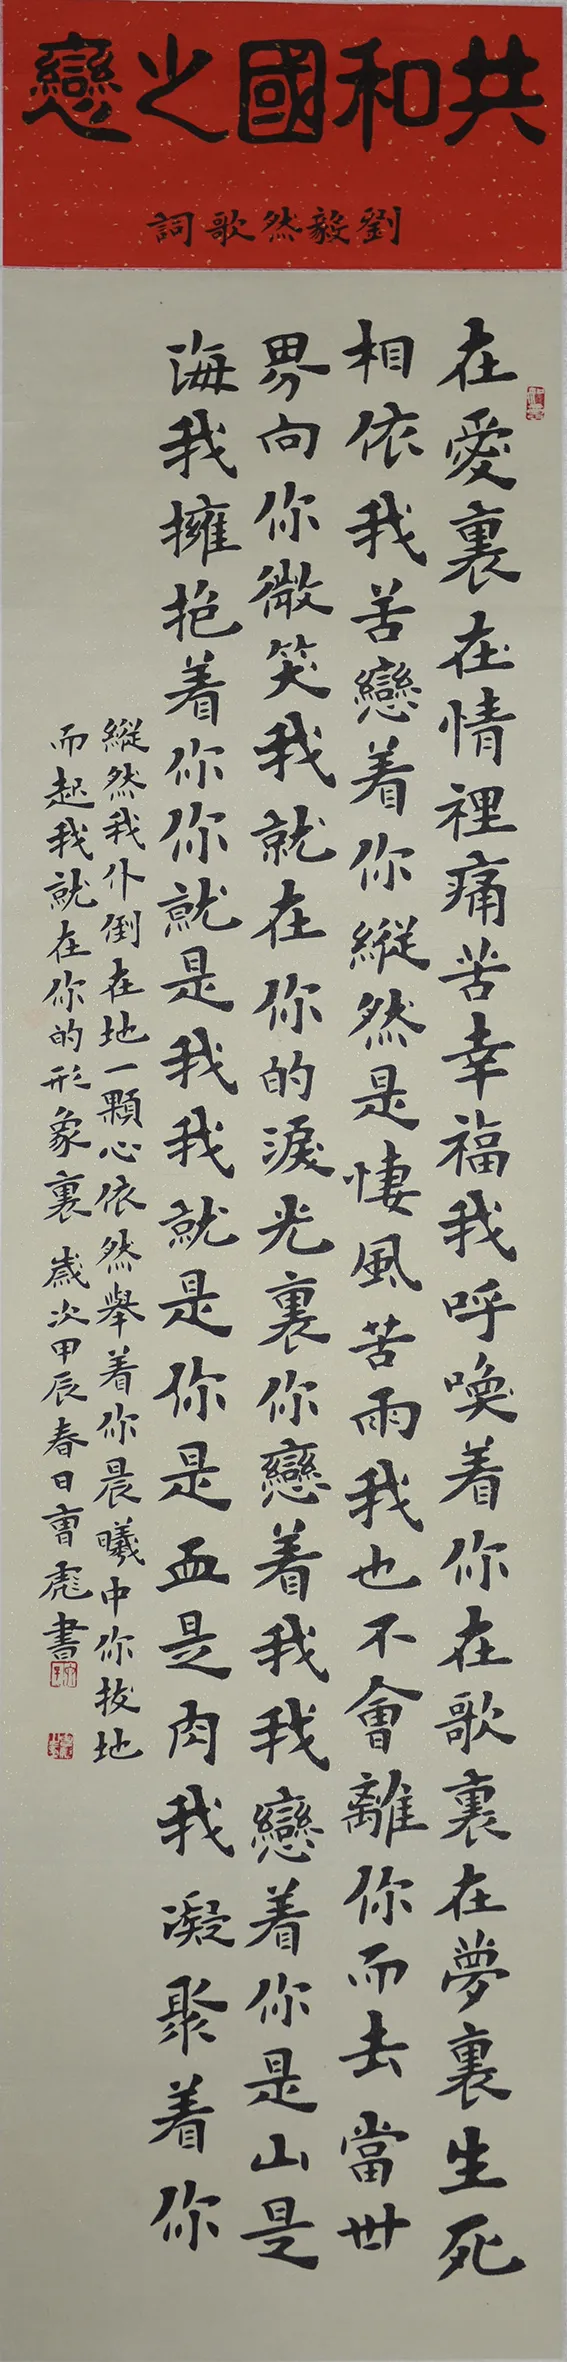 共和國之戀
劉毅然歌詞
在愛裏在情裡痛苦幸福我呼喚着你在歌裏在夢裏生死
相依我苦戀着你縱然是悽風苦雨我也不會離你而去當世
界向你微笑我就在你的淚光裏你戀着我我戀着你是山是
海我擁抱着你你就是我我就是你是血是肉我凝聚着你
縱然我仆倒在地一顆心依然舉着你晨曦中你拔地
而起我就在你的形象裏歲次甲辰春日曹彪書